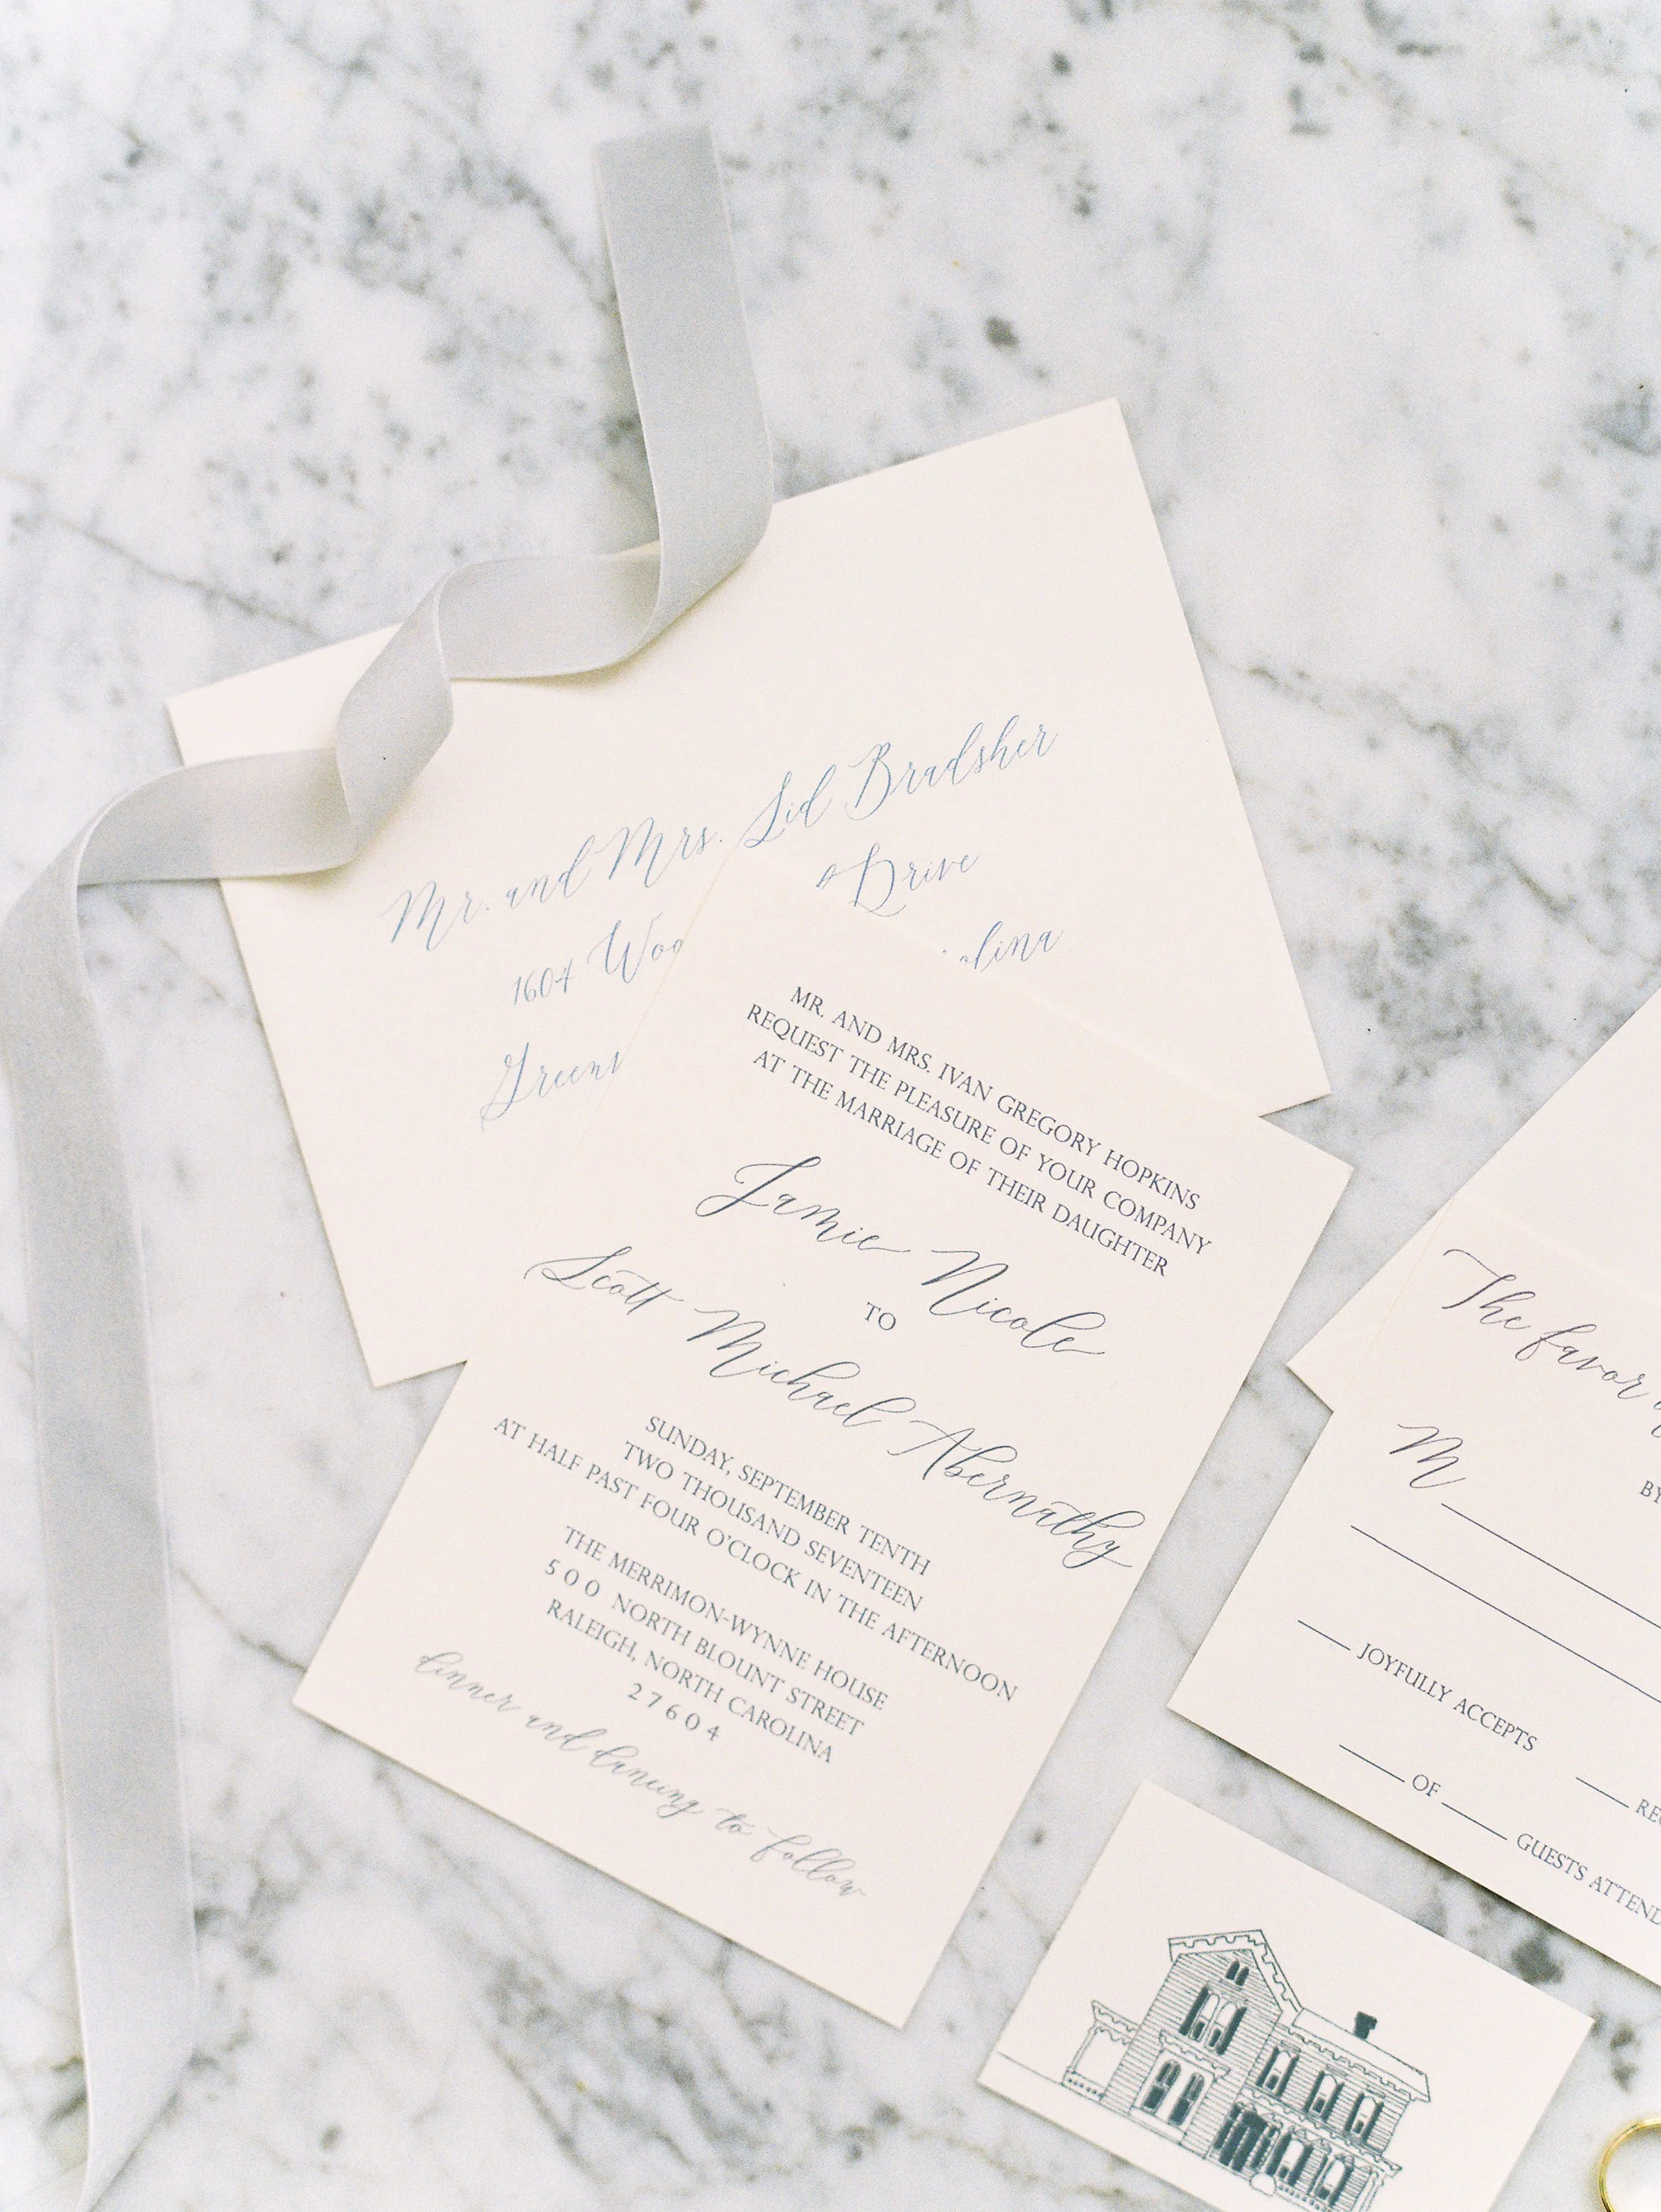 Mr. and Mrs. Sid Bradsher
1604 Drive
MR. AND MRS. IVAN GREGORY HOPKINS
REQUEST THE PLEASURE OF YOUR COMPANY
AT THE MARRIAGE OF THEIR DAUGHTER
Jamie Nicole
TO
Scott Michael Abernathy
SUNDAY, SEPTEMBER TENTH
TWO THOUSAND SEVENTEEN
AT HALF PAST FOUR O'CLOCK IN THE AFTERNOON
THE MERRIMON-WYNNE HOUSE
500 NORTH BLOUNT STREET
RALEIGH, NORTH CAROLINA
27604
dinner and dancing to follow
The favor
M
JOYFULLY ACCEPTS
OF GUESTS